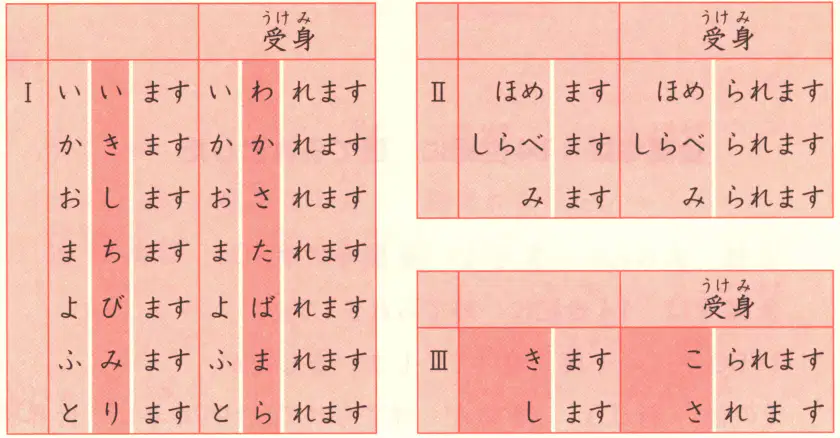 うけみ
受身
Ⅰ いいます いわれます
かきます かかれます
おします おされます
まちます またれます
よびます よばれます
ふみます ふまれます
とります とられます
うけみ
受身
Ⅱ ほめます ほめられます
しらべます しらべられます
みます みられます
うけみ
受身
Ⅲ きます こられます
します されます